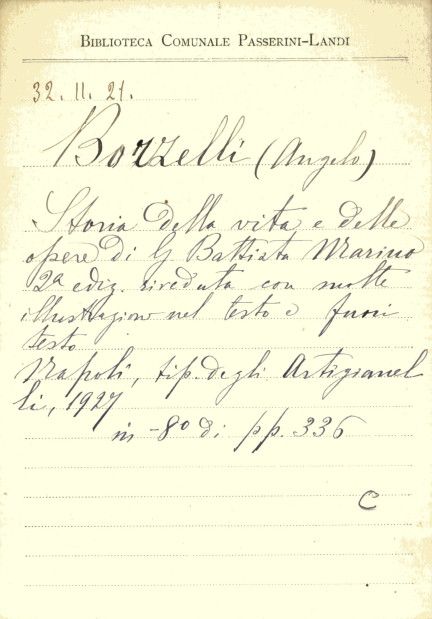 BIBLIOTECA COMUNALE PASSERINI-LANDI
32. 11. 21.
Borzelli (Angelo)
Storia della vita e delle
opere di G Battista Marino
2ª ediz. riveduta con molte
illustrazioni nel testo e fuori
testo
Napoli, tip. degli Artigianel
li, 1927
in -8º di pp. 336
C